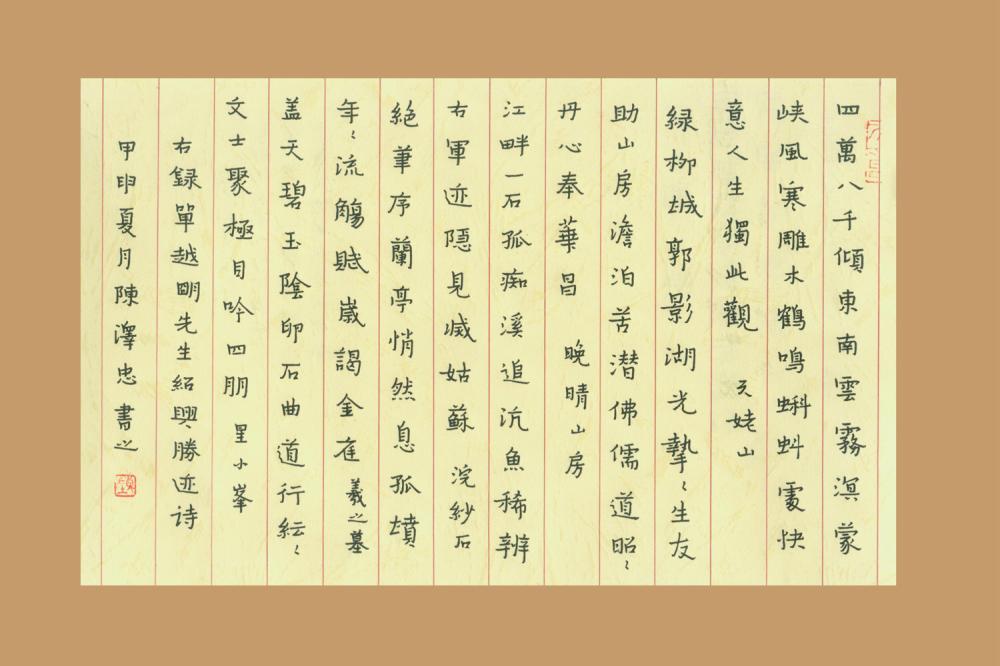 四萬八千傾東南雲霧溟蒙
峡風寒雕木鶴鳴蝌蚪處快
意人生獨此觀 天姥山
緑柳城郭影湖光摯〻生友
助山房澹泊苦潜佛儒道昭〻
丹心奉華昌 晚晴山房
江畔一石孤痴溪追沆魚稀辨
右軍迹隠見滅姑蘇 浣紗石
絶筆序蘭亭悄然息孤墳
年〻流觴賦歲謁金雀 羲之墓
盖天碧玉陰卯石曲道行紜〻
文士聚極目吟四朋 里小峯
右録單越明先生紹興勝迹诗
甲申夏月陳澤忠書之